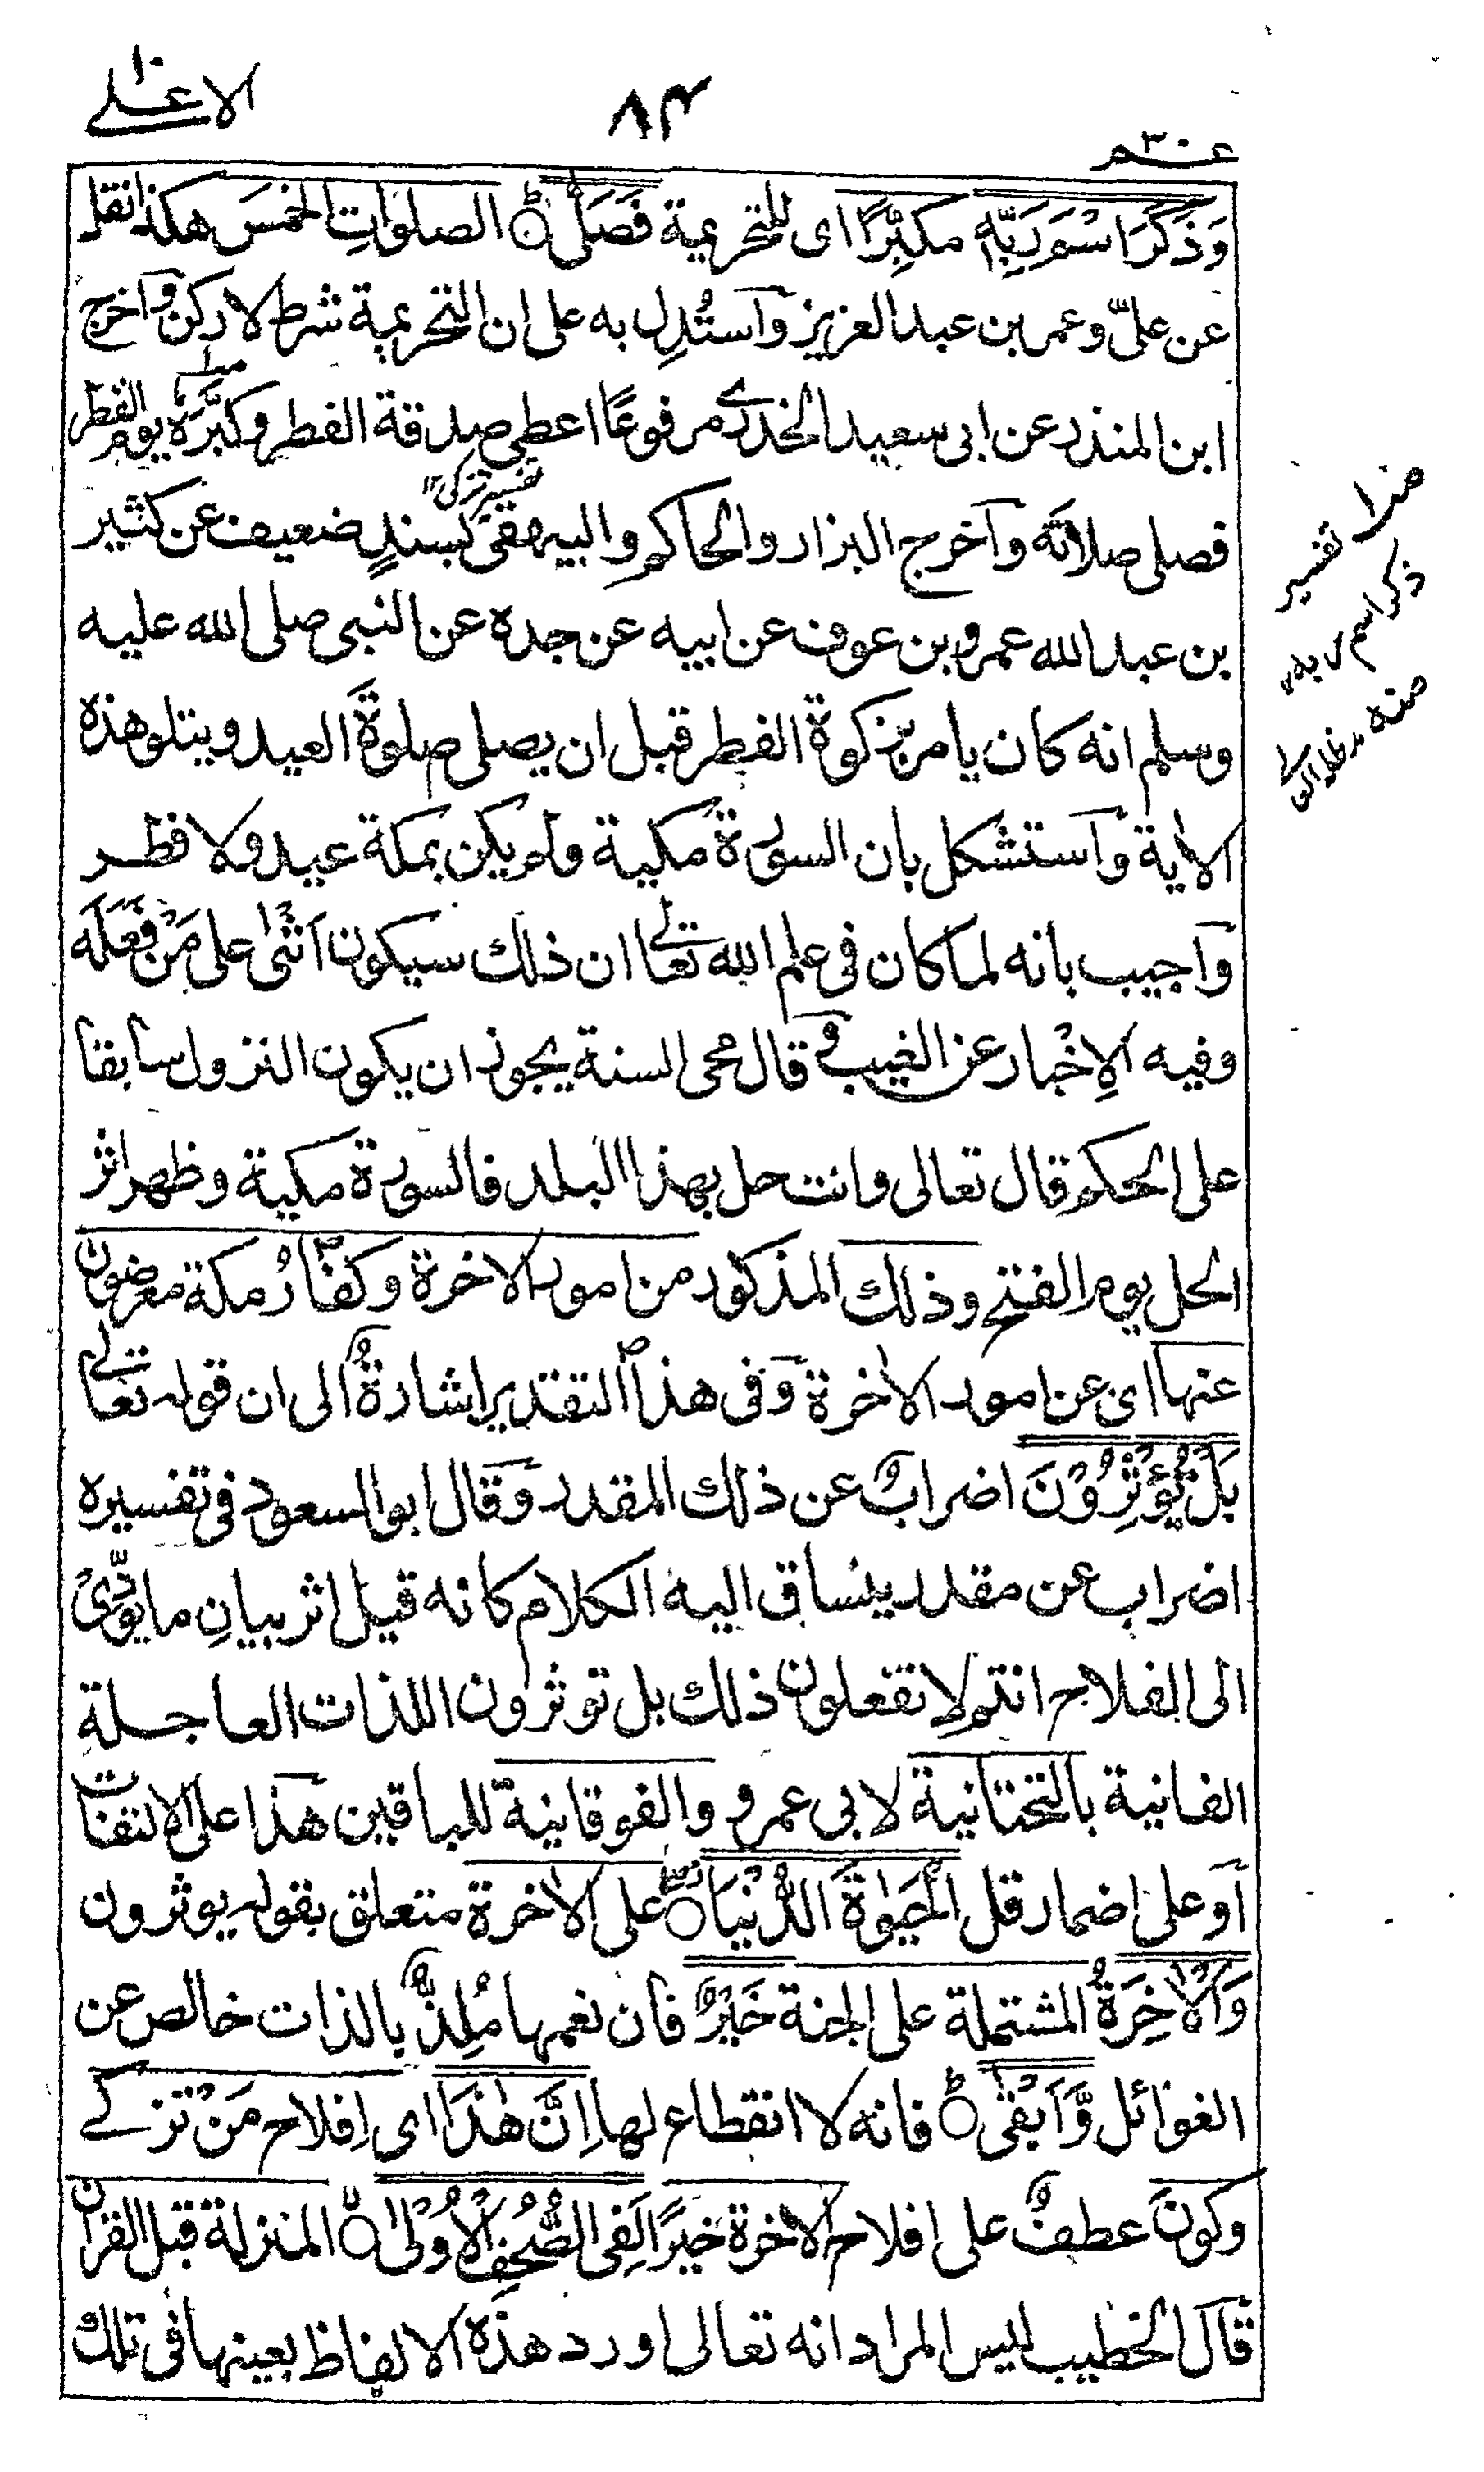 الاعلى
٨٤
عم ٣٠
وَذَكَرَ اسْمَ رَبِّهٖ مكبِّرًا اى للتحريمة فَصَلّٰى الصلواتِ الخمسَ هكذا نقل
عن علىّ وعمر بن عبد العزيز وآستُدِل به على ان التحريمة شرط لا ركن وآخرج
ابن المنذر عن ابى سعيد الخدرى مرفوعًا اعطى صدقة الفطر وكبّره يوم الفطر
فصلى صلاته وآخرج البزار والحاكم والبيهقى بسندٍ ضعيف عن كثير
تفسير تزكى ١٢
بن عبد الله عمرو بن عوف عن ابيه عن جده عن النبى صلى الله عليه
وسلم انه كان يامر بزكوة الفطر قبل ان يصلى صلوةَ العيد ويتلو هذه
الاية وآستشكل بان السورة مكية ولم يكن بمكة عيد ولا فطر
وآجيب بانه لما كان فى علم الله تعالى ان ذلك سيكون اَثنٰى على مَنْ فَعَلَه
وفيه الاِخْبار عن الغيب قال محى السنة يجوز ان يكون النزول سابقا
على الحكم قال تعالى وانت حل بهذا البلد فالسورة مكية وظهر اثر
الحل يوم الفتح وذلك المذكور من امور الاخرة وكفّارُ مكة معرضون
عنها اى عن امور الاخرة وَفى هذا التقدير اشارةٌ الى ان قوله تعالى
بَلْ تُؤْثِرُوْنَ اضرابٌ عن ذلك المقدر وَقال ابو السعود فى تفسيره
اضراب عن مقدر ينساق اليه الكلام كانه قيل اثر بيانِ ما يؤدّىْ
الى الفلاح انتم لا تفعلون ذلك بل توثرون اللذات العاجلة
الفانية بالتحتانية لابى عمرو والفوقانية للباقين هذا على الالتفات
آو على اضمار قل الْحَيٰوةَ الدُّنْيَا على الاخرة متعلق بقوله يوثرون
وَالْاٰخِرَةُ المشتملة على الجنة خَيْرٌ فان نعمها مُلِذٌّ بالذات خالص عن
الغوائل وَّاَبْقٰى فانه لا انقطاع لها اِنَّ هٰذَا اى اِفلاح مَنْ تزكے
وكونَ عطفٌ على افلاح الاخرة خيرًا لَفِى الصُّحُفِ الْاُوْلٰى المنزلة قبل القران
قآل الخطيب ليس المراد انه تعالى اورد هذه الالفاظ بعينها فى تلك
تفسير
ذكر اسم ربه